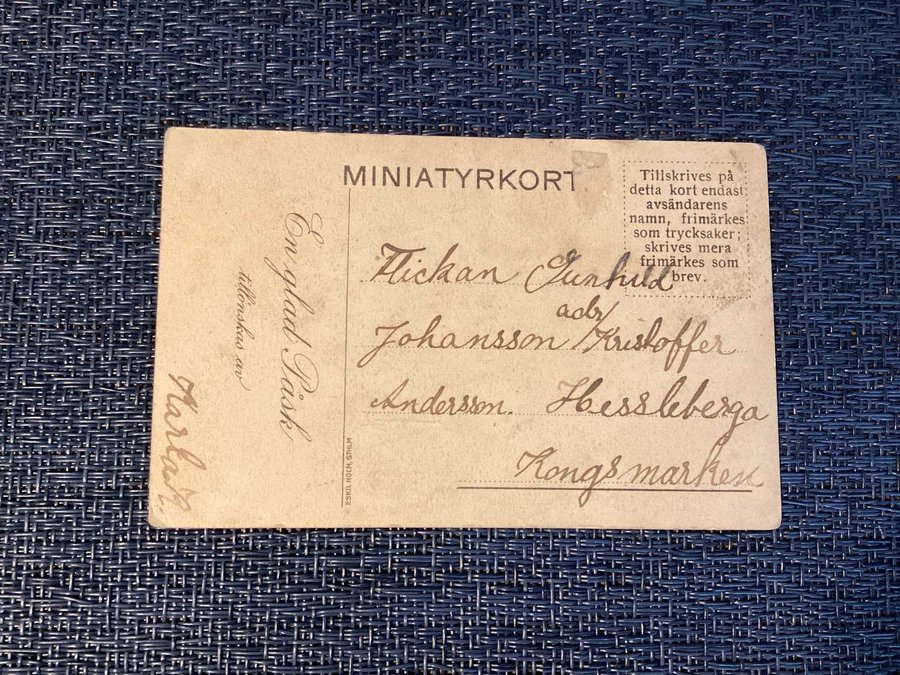 MINIATYRKORT
Tillskrives på
detta kort endast
avsändarens
namn, frimärkes
som trycksaker;
skrives mera
frimärkes som
brev.
Flickan Gunhild
adr/
Johansson Kristoffer
Andersson. Hessleberga
Kongsmarken
En glad Påsk
tillönskas av
Karla K.
ESKIL HOLM, STHLM